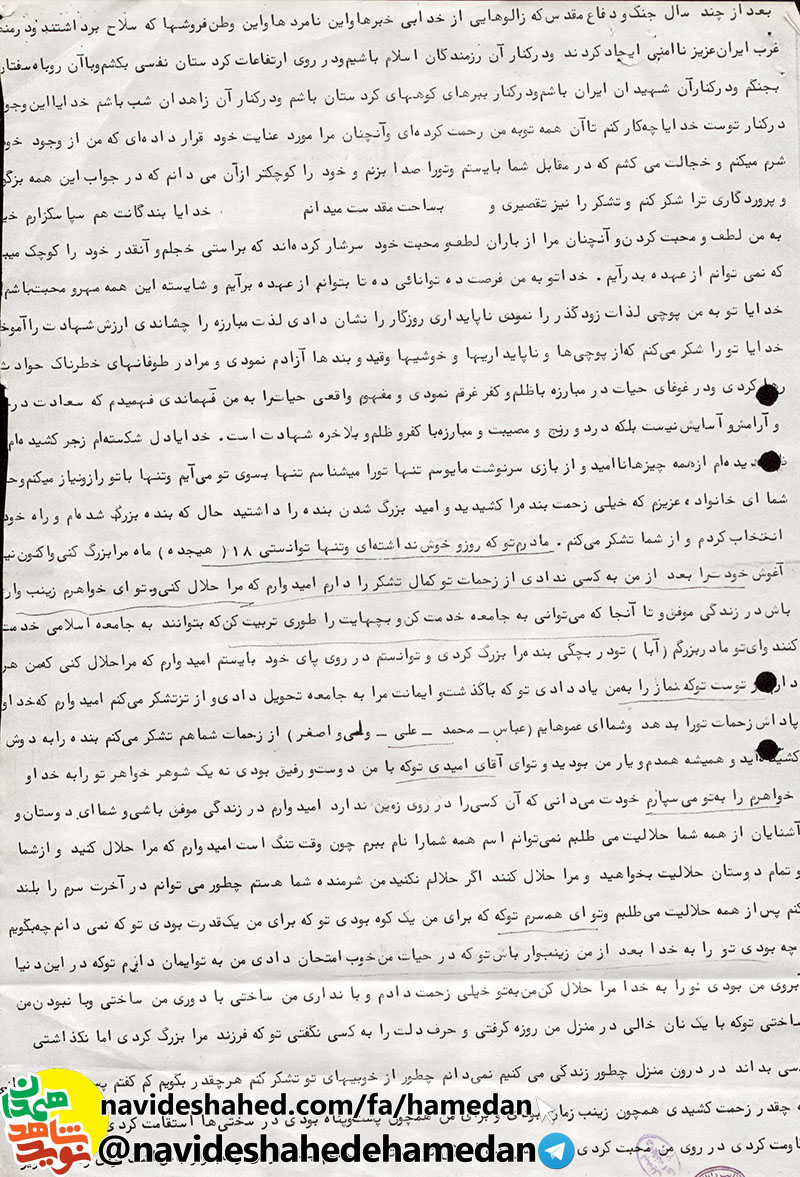 بعد از چند سال جنگ و دفاع مقدس که زالوهایی از خدا بی خبرها و این نامردها و این وطن فروشها که سلاح برداشتند و در منط
غرب ایران عزیز ناامنی ایجاد کردند و در کنار آن رزمندگان اسلام باشیم و در روی ارتفاعات کردستان نفسی بکشم و با آن روباه صفتان
بجنگم و در کنار آن شهیدان ایران باشم و در کنار ببرهای کوههای کردستان باشم و در کنار آن زاهدان شب باشم خدایا این وجو
در کنار توست خدایا چه کار کنم تا آن همه تو به من رحمت کرده ای و آنچنان مرا مورد عنایت خود قرار داده ای که من از وجود خود
شرم میکنم و خجالت می کشم که در مقابل شما بایستم و تو را صدا بزنم و خود را کوچکتر از آن می دانم که در جواب این همه بزرگو
و پروردگاری ترا شکر کنم و تشکر را نیز تقصیری و به ساحت مقدست میدانم خدایا بندگانت هم سپاسگزارم خی
به من لطف و محبت کردن و آنچنان مرا از باران لطف و محبت خود سرشار کرده اند که براستی خجلم و آنقدر خود را کوچک میب
که نمی توانم از عهده بدرآیم . خدا تو به من فرصت ده توانائی ده تا بتوانم از عهده برآیم و شایسته این همه مهر و محبت باشم
خدایا تو به من پوچی لذات زودگذر را نمودی ناپایداری روزگار را نشان دادی لذت مبارزه را چشاندی ارزش شهادت را آموخ
خدایا تو را شکر می کنم که از پوچی ها و ناپایداریها و خوشیها و قید و بندها آزادم نمودی و مرا در طوفانهای خطرناک حوادث
رها کردی و در غوغای حیات در مبارزه با ظلم و کفر غرقم نمودی و مفهوم واقعی حیات را به من فهماندی فهمیدم که سعادت در
و آرامش و آسایش نیست بلکه درد و رنج و مصیبت و مبارزه با کفر و ظلم و بلاخره شهادت است . خدایا دل شکسته ام زجر کشیده ام
دیده ام از همه چیزها ناامید و از بازی سرنوشت مایوسم تنها تو را میشناسم تنها بسوی تو می آیم و تنها با تو راز و نیاز میکنم و
شما ای خانواده عزیزم که خیلی زحمت بنده را کشیدید و امید بزرگ شدن بنده را داشتید حال که بنده بزرگ شده ام و راه خود
انتخاب کردم و از شما تشکر می کنم . مادرم تو که روز و خوش نداشته ای و تنها توانستی ۱۸ ( هیجده ) ماه مرا بزرگ کنی و اکنون نی
آغوش خودت را بعد از من به کسی ندادی از زحمات تو کمال تشکر را دارم امیدوارم که مرا حلال کنی و تو ای خواهرم زینب وار
باش در زندگی موفق و تا آنجا که می توانی به جامعه خدمت کن و بچهایت را طوری تربیت کن که بتوانند به جامعه اسلامی خدمت
کنند و ای تو مادر بزرگم ( آبا ) تو در بچگی بنده را بزرگ کردی و توانستم در روی پای خود بایستم امیدوارم که مرا حلال کنی که من هر
دارم از توست تو که نماز را به من یاد دادی تو که با گذشت و ایمانت مرا به جامعه تحویل دادی و از تو تشکر می کنم امیدوارم که خداو
پاداش زحمات تو را بدهد و شما ای عموهایم ( عباس ــ محمد ــ علی ــ ولی و اصغر ) از زحمات شما هم تشکر می کنم بنده را به دوش
کشیده اید و همیشه همدم و یار من بودید و تو ای آقای امیدی تو که با من دوست و رفیق بودی نه یک شوهر خواهر تو را به خدا و
خواهرم را به تو می سپارم خودت می دانی که آن کسی را در روی زمین ندارد امیدوارم در زندگی موفق باشی و شما ای دوستان و
آشنایان از همه شما حلالیت می طلبم نمی توانم اسم همه شما را نام ببرم چون وقت تنگ است امیدوارم که مرا حلال کنید و از شما
و تمام دوستان حلالیت بخواهید و مرا حلال کنند اگر حلالم نکنید من شرمنده شما هستم چطور می توانم در آخرت سرم را بلند
کنم پس از همه حلالیت می طلبم و تو ای همسرم تو که که برای من یک کوه بودی تو که برای من یک قدرت بودی تو که نمی دانم چه بگویم
چه بودی تو را به خدا بعد از من زینب وار باش تو که در حیات من خوب امتحان دادی من به تو ایمان دارم تو که در این دنیا
آبروی من بودی تو را به خدا مرا حلال کن من به تو خیلی زحمت دادم و با نداری من ساختی با دوری من ساختی و با نبودن من
ساختی تو که با یک نان خالی در منزل من روزه گرفتی و حرف دلت را به کسی نگفتی تو که فرزند مرا بزرگ کردی اما نگذاشتی
کسی بداند در درون منزل چطور زندگی می کنیم نمی دانم چطور از خوبیهای تو تشکر کنم هر چقدر بگویم کم گفتم پس
چقدر زحمت کشیدی همچون زینب زمان بودی و برای من همچون پشت و پناه بودی در سختی ها استقامت کردی
اومت کردی در روی من محبت کردی
نوید شاهد همدان
navideshahed.com/fa/hamedan
@navideshahedehamedan